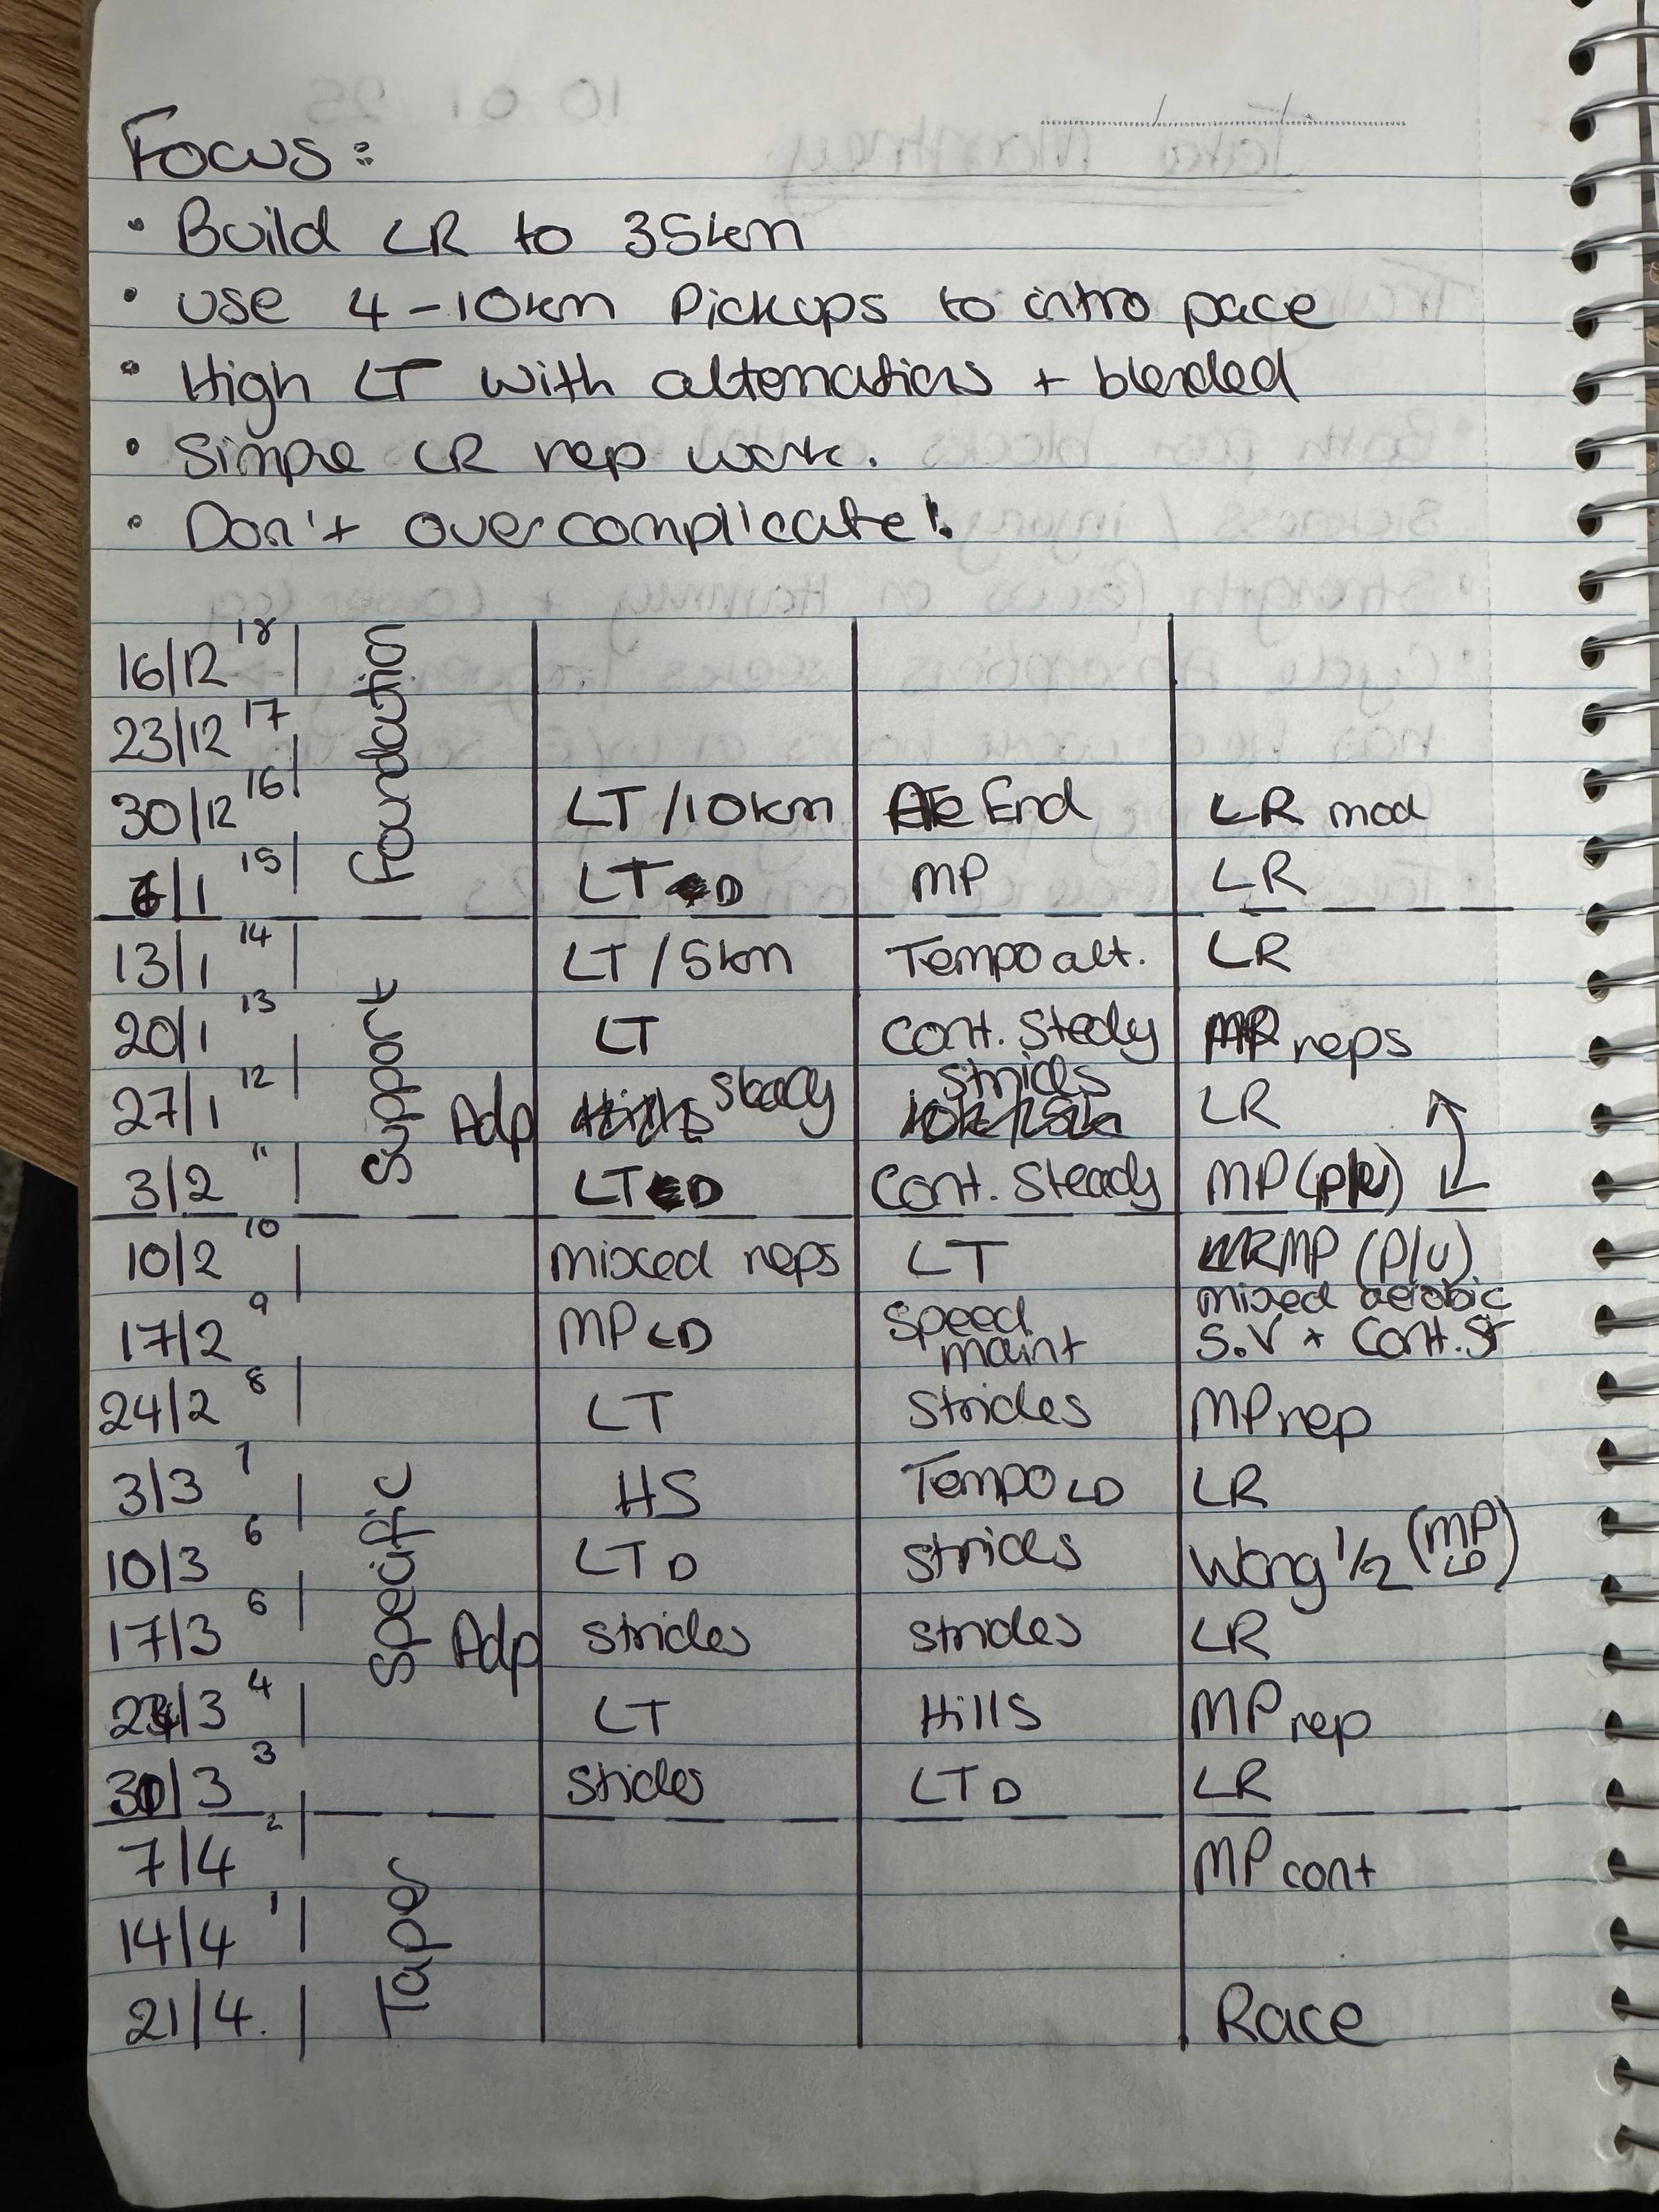 Focus:
• Build LR to 35km
• Use 4-10km Pickups to intro pace
• High LT with alternations + blended
• Simple LR rep work.
• Don't overcomplicate!
16/12 18 Foundation
23/12 17
30/12 16 LT/10km Ae End LR mod
6/1 15 LT D MP LR
13/1 14 Support LT/5km Tempo alt. LR
20/1 13 LT Cont. Stedy MP reps
27/1 12 Adp Steady Strides LR
3/2 11 LT D Cont. Steady MP (p/u)
10/2 10 Specific mixed reps LT MP (P/U)
17/2 9 MP LD Speed maint mixed aerobic
S.V + Cont. St
24/2 8 LT Strides MP rep
3/3 7 HS Tempo LD LR
10/3 6 LT D Strides Wang 1/2 (MP LD)
17/3 6 Adp Strides Strides LR
24/3 4 LT Hills MP rep
30/3 3 Stides LT D LR
7/4 2 Taper MP cont
14/4 1
21/4. Race